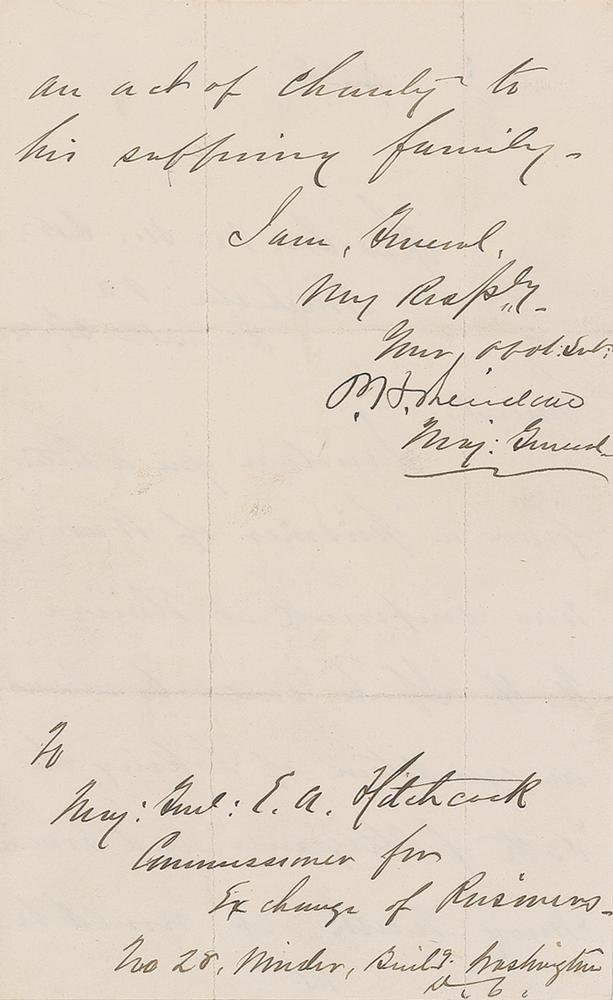 an act of charity to
his suffering family -
I am, General,
Very Resp'ly -
Your obdt: Svt:
P. H. Sheridan
Maj: General
To
Maj: Genl: E. A. Hitchcock
Commissioner for
Exchange of Prisoners -
No 28, Winder, Buildg. Washington
D. C.